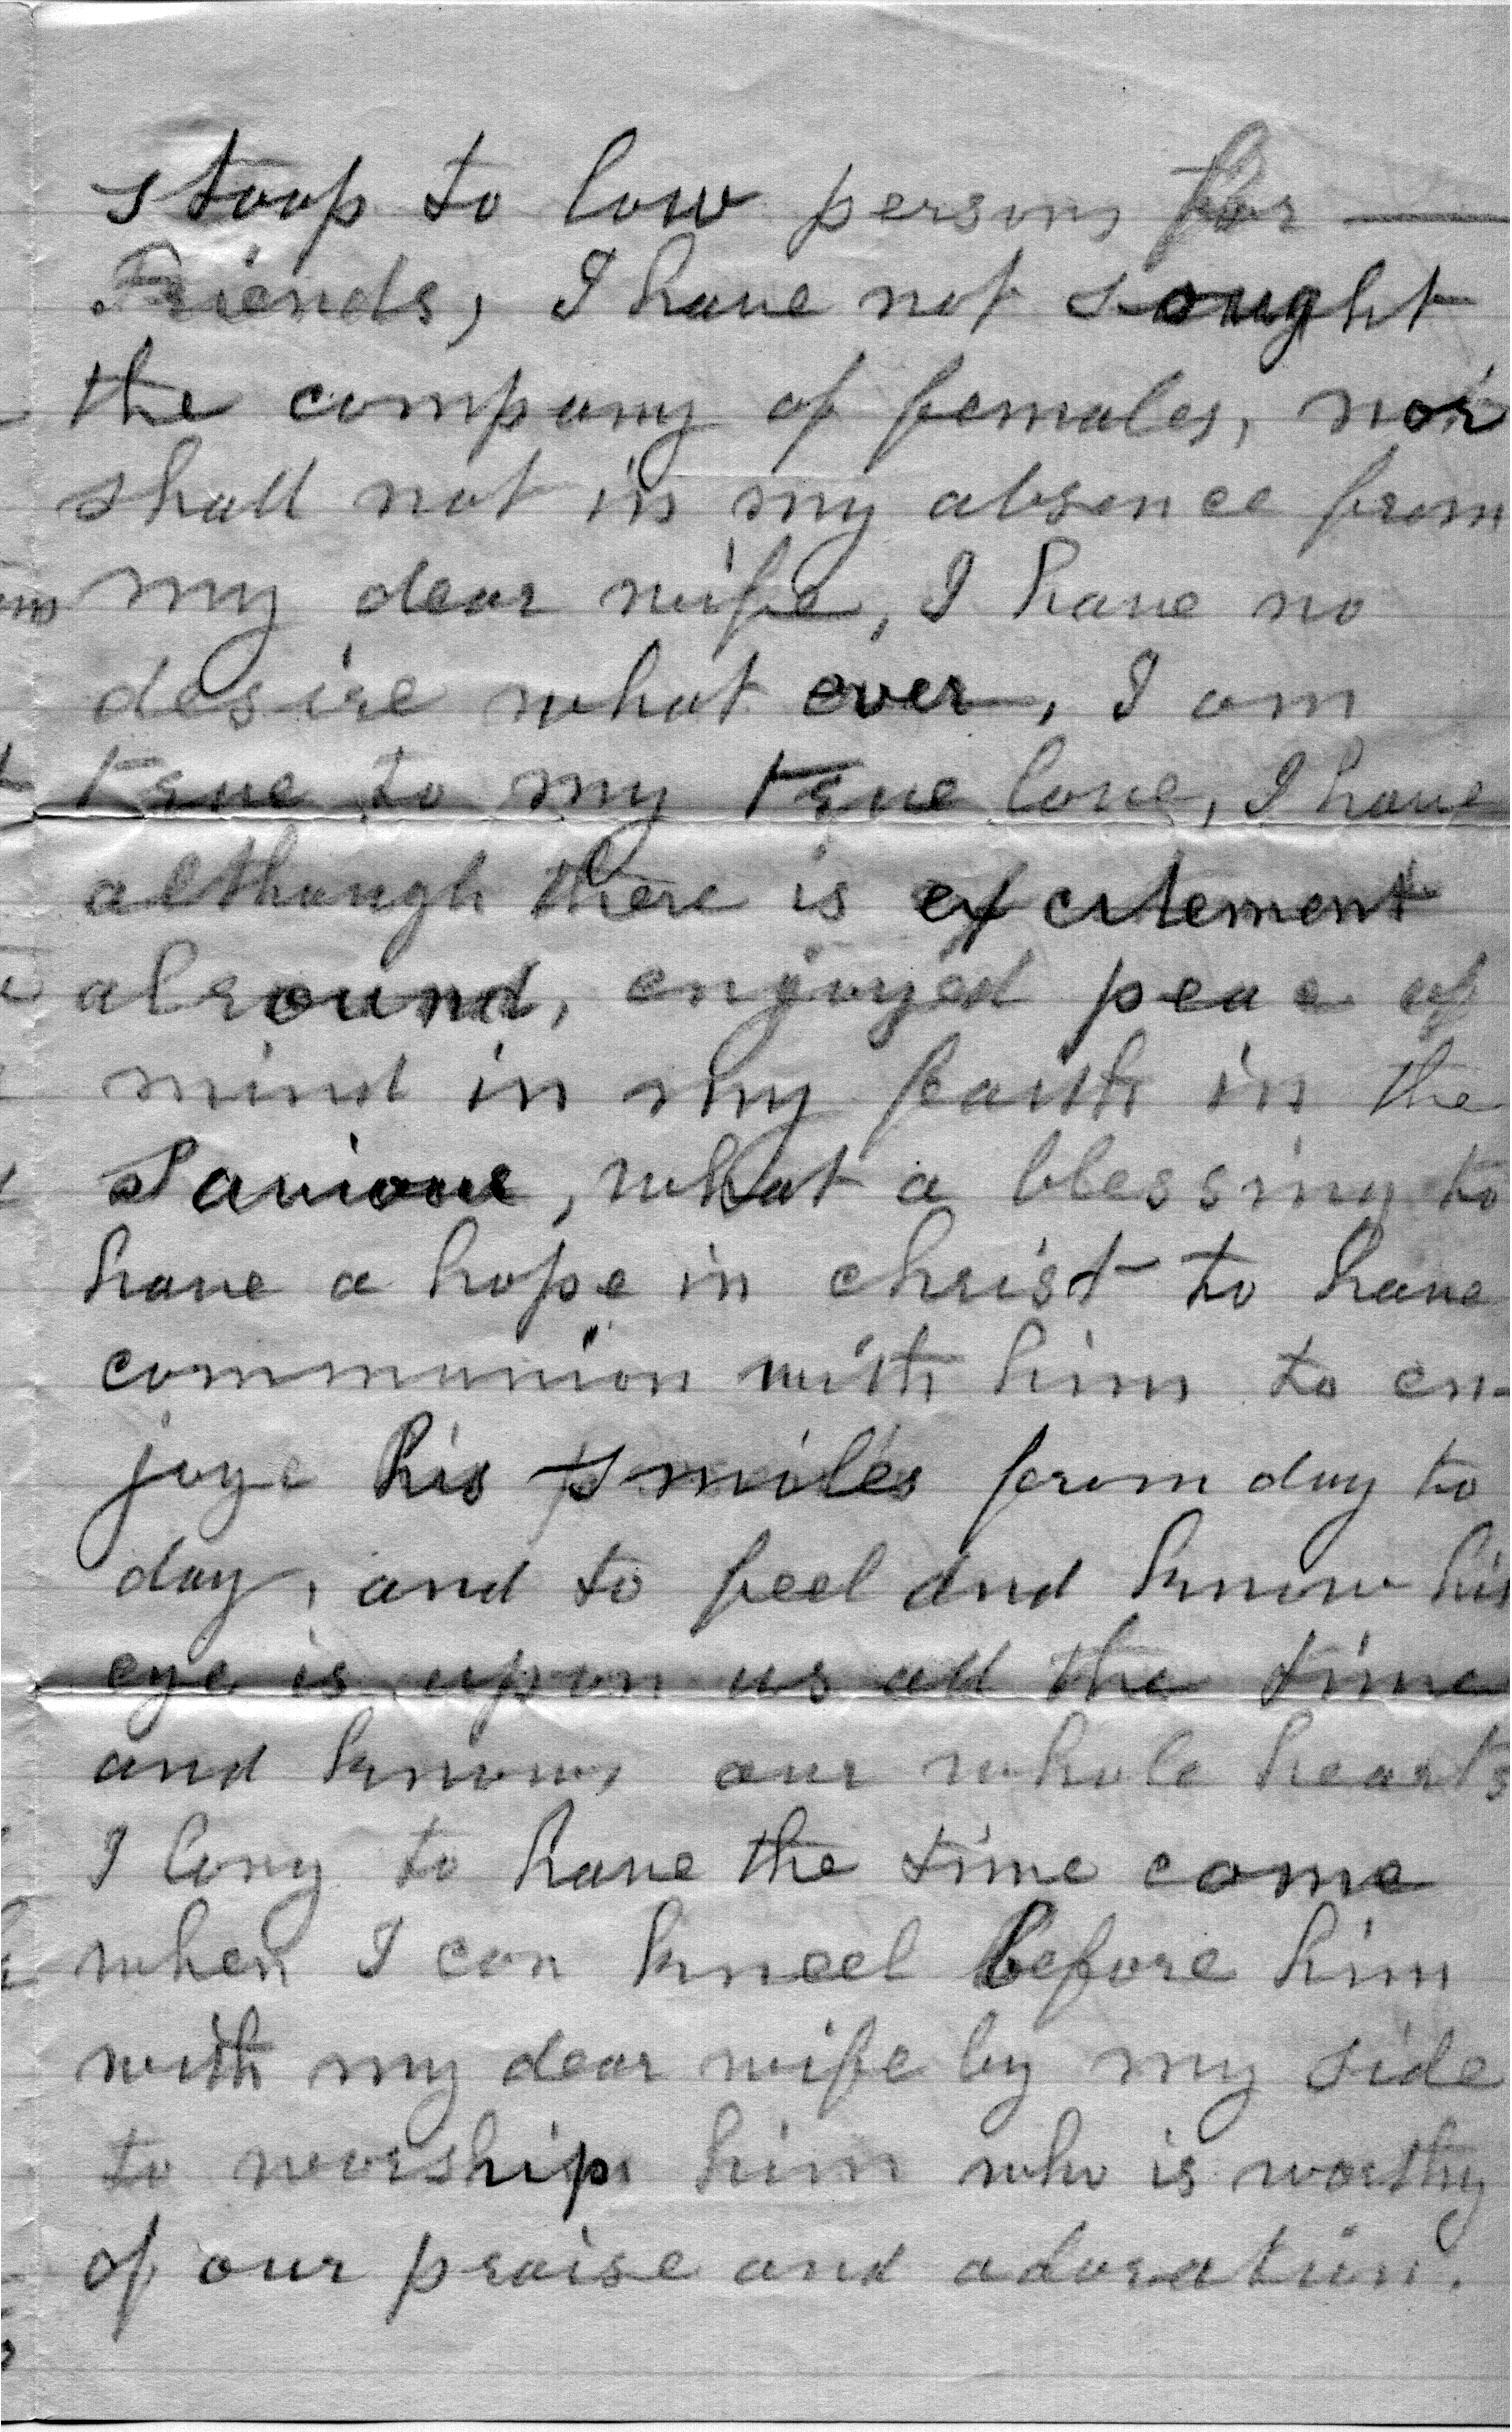 stoop to low persons for —
Friends, I have not sought
the company of females, nor
shall not in my absence from
my dear wife, I have no
desire what ever, I am
true to my true love, I have
although there is excitement
alround, enjoyed peac of
mind in my faith in the
Saviour, what a blessing to
have a hope in christ to have
communion with him to en-
joye his smiles from day to
day, and to feel and know his
eye is upon us all the time
and knows our whole hearts
I long to have the time come
when I can kneel before him
with my dear wife by my side
to worship him who is worthy
of our praise and adoration.